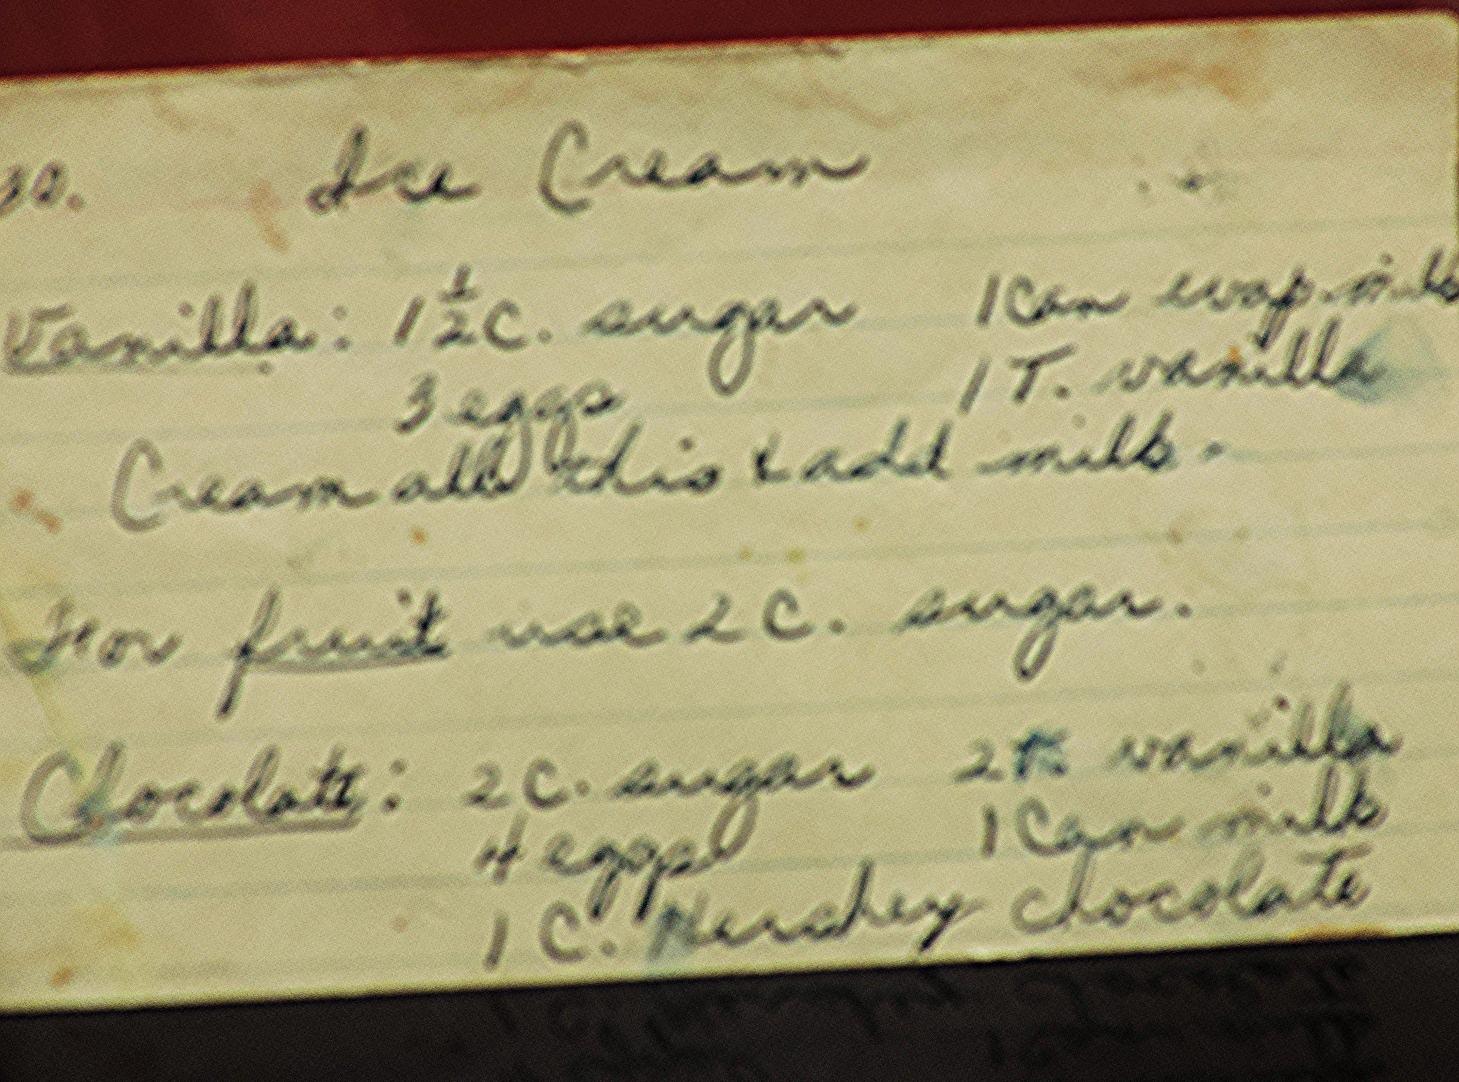 30. Ice Cream
Vanilla: 1 1/2 C. sugar 1 Can evap. milk
3 eggs 1 T. vanilla
Cream all this & add milk.
For fruit use 2 C. sugar.
Chocolate: 2 C. sugar 2 vanilla
4 eggs 1 Can milk
1 C. Hershey chocolate